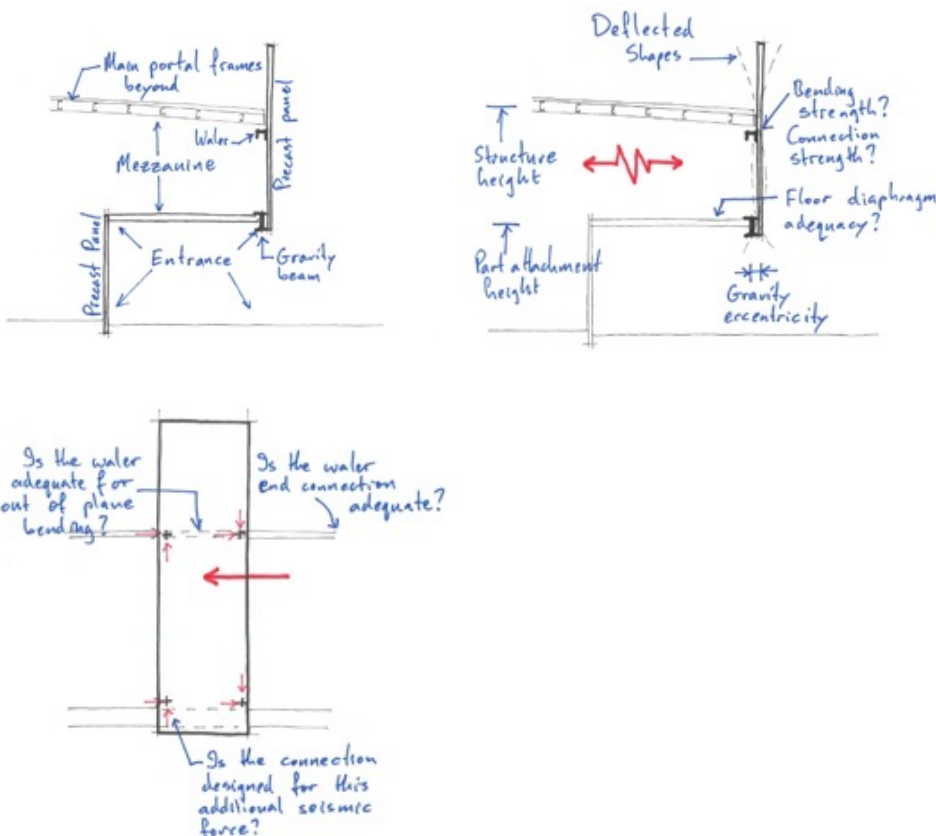 Main portal frames
beyond
Waler
Mezzanine
Precast panel
Precast Panel
Entrance
Gravity
beam
Deflected
Shapes
Bending
strength?
Connection
strength?
Structure
height
Floor diaphragm
adequacy?
Part attachment
height
Gravity
eccentricity
Is the waler
adequate for
out of plane
bending?
Is the waler
end connection
adequate?
Is the connection
designed for this
additional seismic
force?